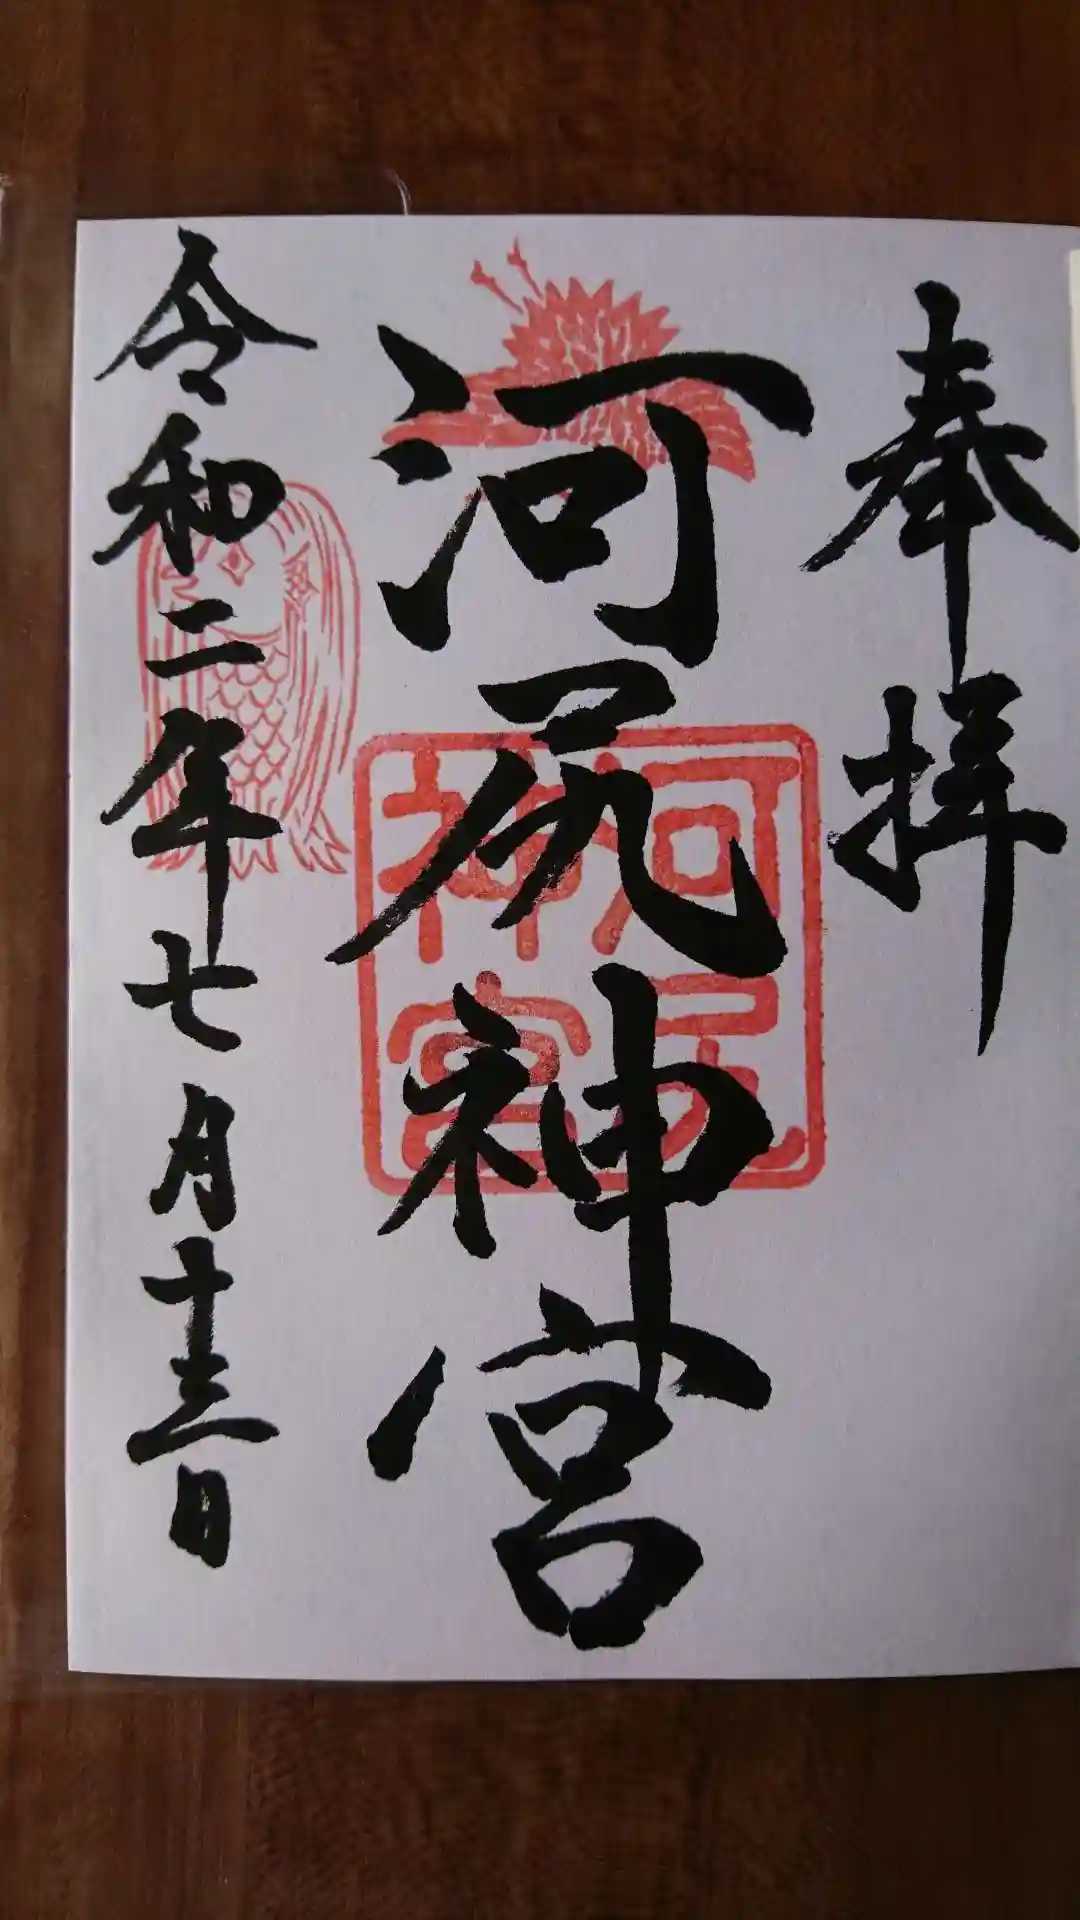 奉拝
河尻神宮
河尻
神宮
令和二年七月十三日